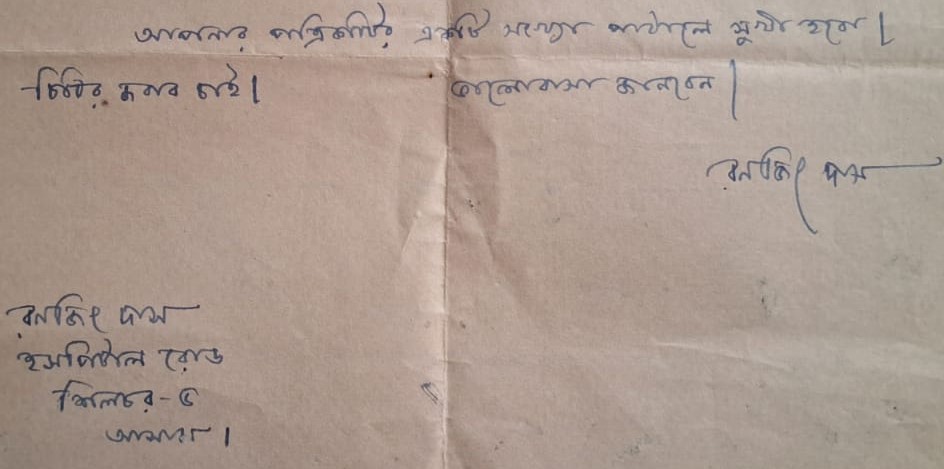 আপনার পত্রিকাটির একটি সংখ্যা পাঠালে সুখী হবো।
চিঠির জবাব চাই। ভালোবাসা জানবেন।
রনজিৎ দাস
রনজিৎ দাস
হসপিটাল রোড
শিলচর-৫
আসাম।